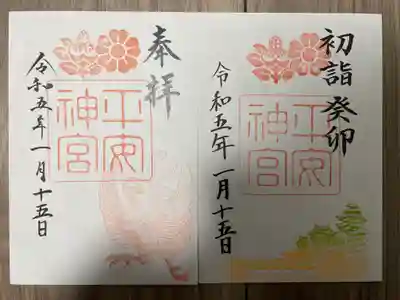 奉拝
平安
神宮
令和五年一月十五日
初詣 癸卯
平安
神宮
令和五年一月十五日